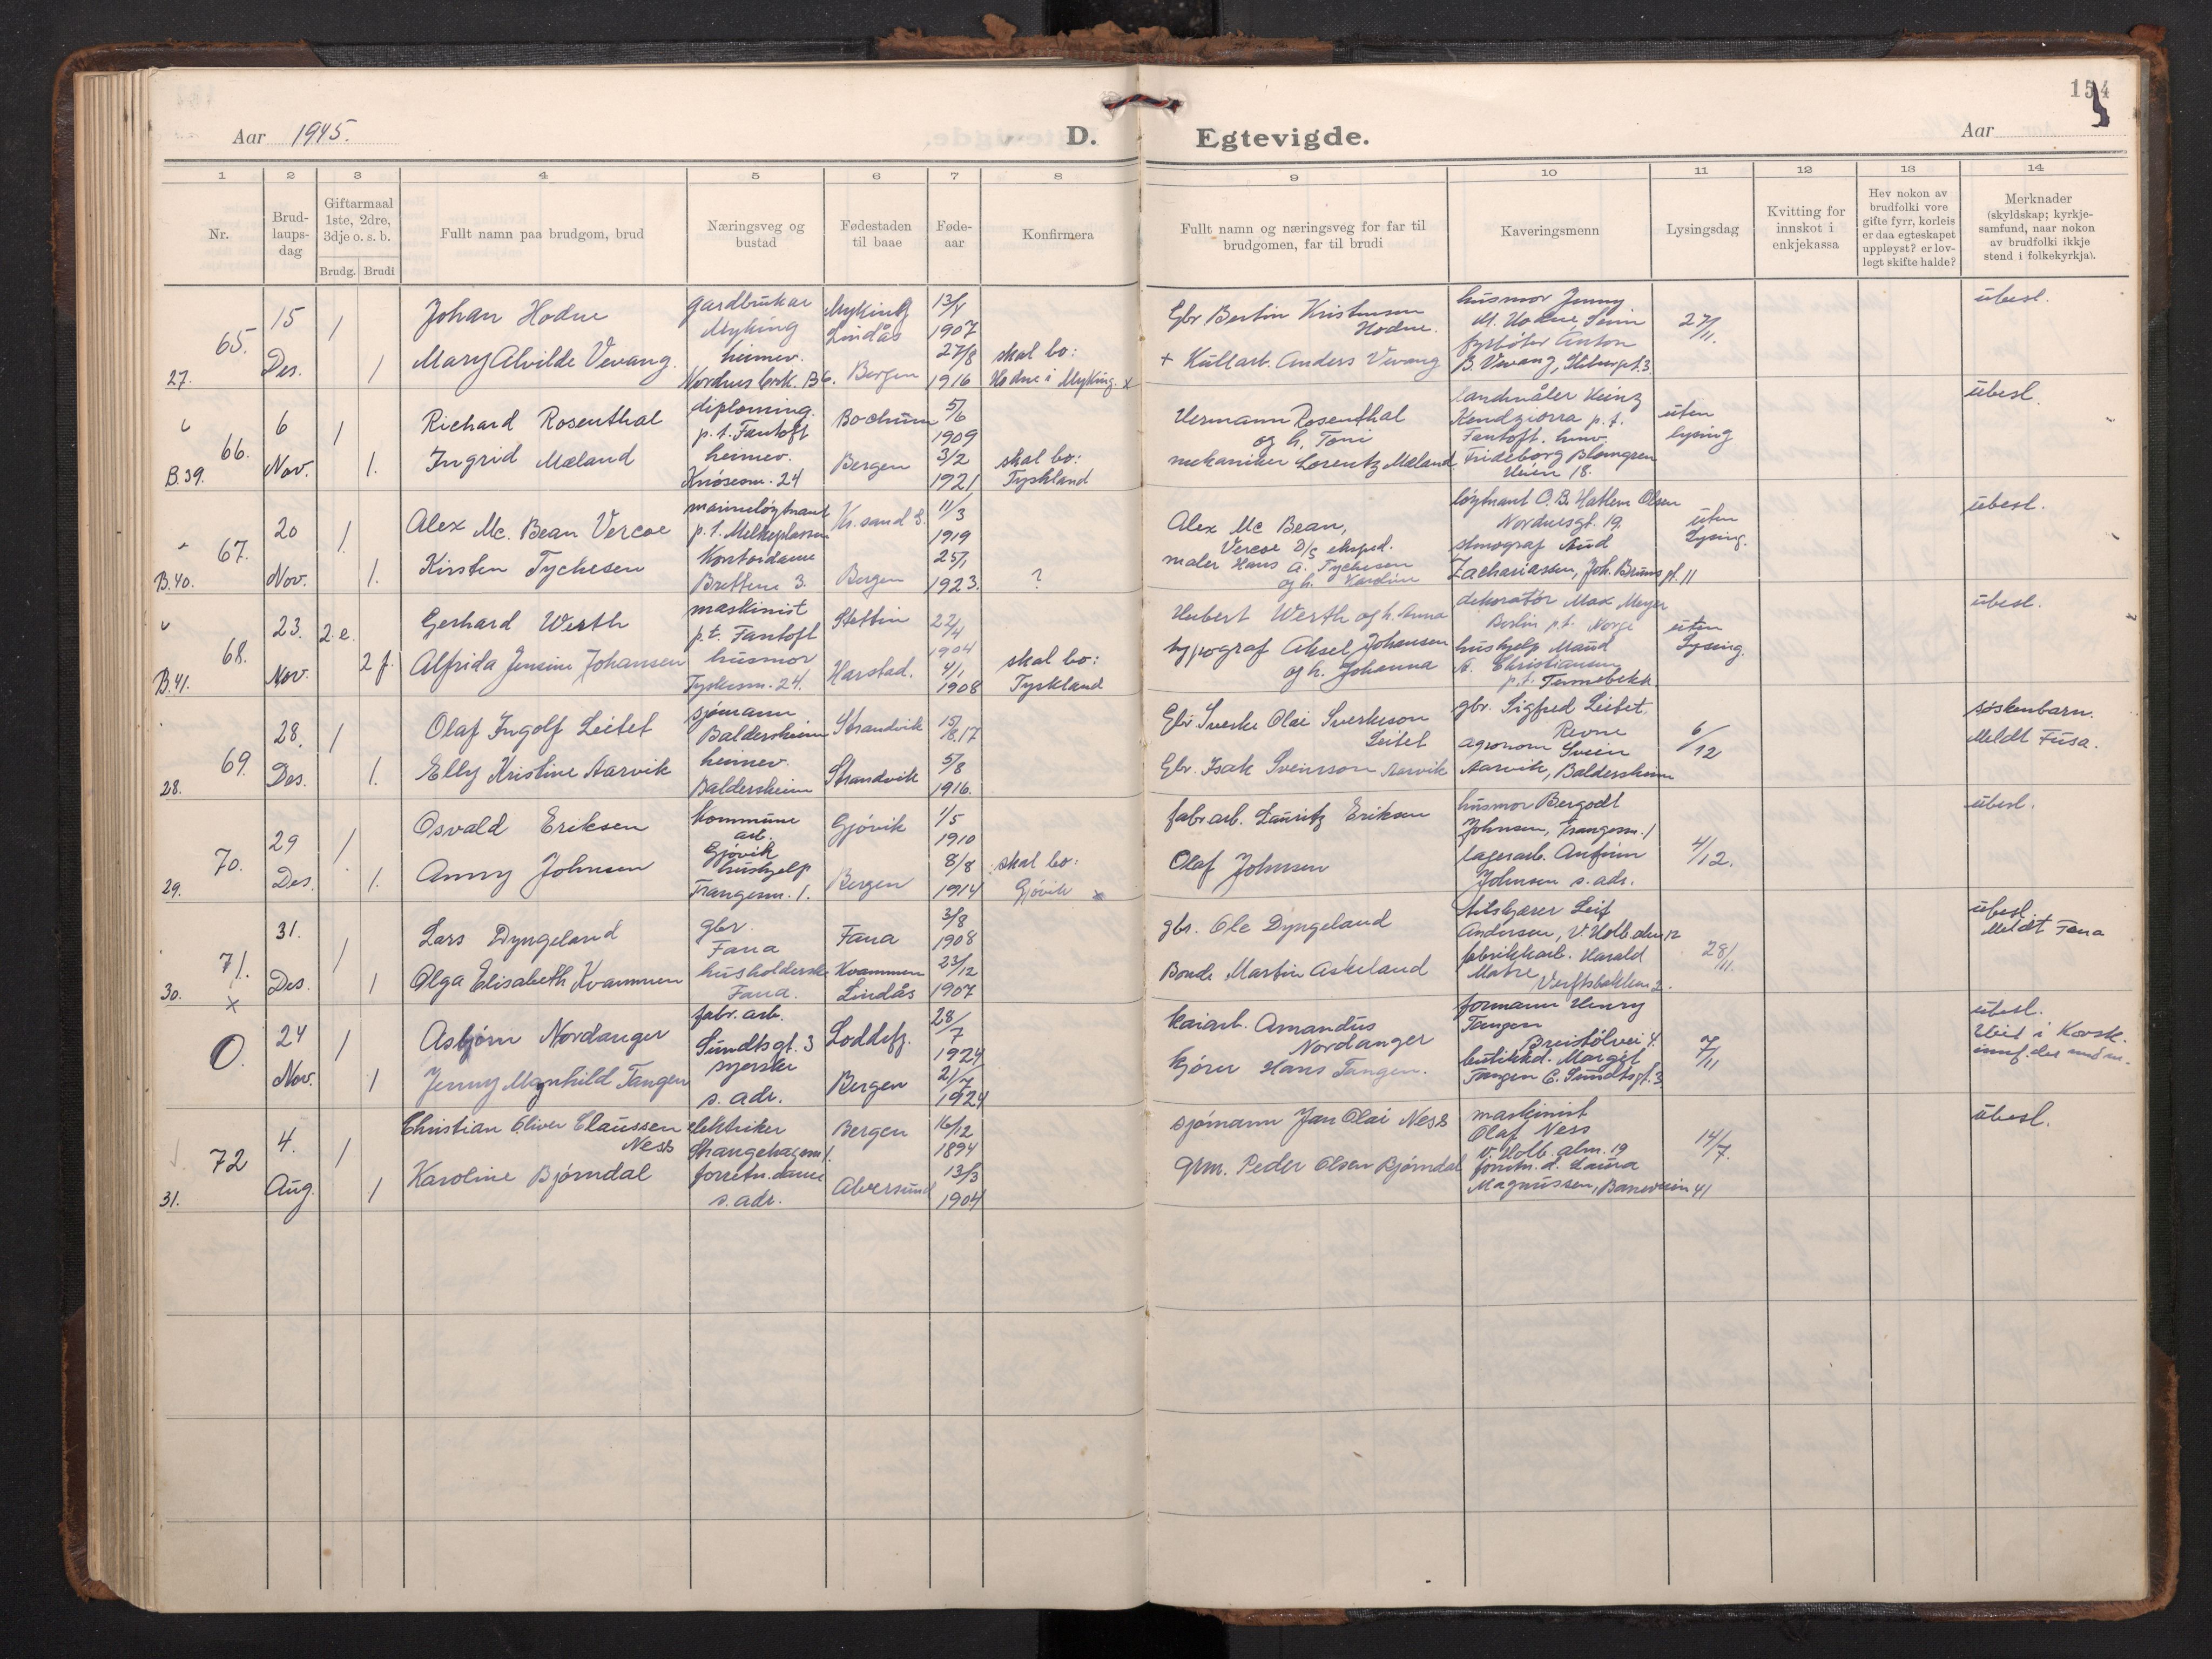 154
Aar 1945.
D.
Egtevigde.
Aar
1 2 3 4 5 6 7 8 9 10 11 12 13 14
Nr.
Brud-
laups-
dag
Giftarmaal
1ste, 2dre,
3dje o. s. b.
Brudg. Brudi
Fullt namn paa brudgom, brud
Næringsveg og
bustad
Fødestaden
til baae
Føde-
aar
Konfirmera
Fullt namn og næringsveg for far til
brudgomen, far til brudi
Kaveringsmenn
Lysingsdag
Kvitting for
innskot i
enkjekassa
Hev nokon av
brudfolki vore
gifte fyrr, korleis
er daa egteskapet
uppløyst? er lov-
legt skifte halde?
Merknader
(skyldskap; kyrkje-
samfund, naar nokon
av brudfolki ikkje
stend i folkekyrkja).
65.
27.
15
Des.
1
1
Johan Hodne
Mary Alvilde Vevang.
gardbrukar
Myking
heimev.
Myking
Lindås
Bergen
1907
27/8
1916
skal bo:
Hodne i Myking. x
Gbr Bertin Kristensen
Hodne.
+ Kullarb. Anders Vevang
husmor Jenny
M. Hodne,
fyrbøter Anton
B. Vevang,
27/11.
ubesl.
66.
B.39.
6
Nov.
1
1.
Richard Rosenthal
Ingrid Mæland
diploming.
p.t. Fantoft
heimev.
Knøsesm. 24
Bochum
Bergen
5/6
1909
3/2
1921
skal bo:
Tyskland
Hermann Rosenthal
og h. Toni
mekaniker Lorentz Mæland
landmåler Heinz
Kendziorra p.t.
Fantoft. hmv.
Frideborg Blomgren
18.
uten
lysing
ubesl.
67.
B.40.
20
Nov.
1.
1.
Alex Mc. Bean Vercoe
Kirsten Tychesen
marineløytnant
p.t. Melkeplassen
Kontordame
3.
Kr.sand S.
Bergen
11/3
1919
25/1
1923.
?
Alex Mc Bean,
Vercoe D/S eksped.
maler Hans A. Tychesen
og h.
løytnant O.B. Hatlem Olsen
Nordnesgt. 19.
stenograf Aud
Zachariassen, Joh. Bruns gt. 11
uten
Lysing.
ubesl.
68.
B.41.
23.
Nov.
2.e.
2 f.
Gerhard Werth
Alfrida Jensine Johansen
maskinist
p.t. Fantoft
husmor
24.
Stettin
Harstad.
22/4
1904
4/1
1908
skal bo:
Tyskland
Hubert Werth og h. Anna
typograf Aksel Johansen
og h. Johanna
dekoratør Max Meyer
Berlin p.t. Norge
hushjelp Maud
A. Christiansen
p.t. Tennebekk.
uten
Lysing.
ubesl.
69.
28.
28.
Des.
1
1.
Olaf Ingolf Leitet
Elly Kristine Aarvik
sjømann
Baldersheim
heimev.
Baldersheim
Strandvik
Strandvik
5/8
1916.
Gbr Sverke Olai Sverkeson
Leitet
Gbr. Isak Svensson Aarvik
gbr. Sigfred Leitet,
Revne
agronom Svein
Aarvik, Baldersheim
6/12
søskenbarn.
Meldt Fusa.
70.
29.
29
Des.
1
1.
Osvald Eriksen
Anny Johnsen
Kommune
arb.
Gjøvik
hushjelp
Trangesm. 1.
Gjøvik
Bergen
1/5
1910
8/8
1914
skal bo:
Gjøvik x
fabr.arb. Lauritz Eriksen
Olaf Johnsen
husmor Bergodt
Johnsen, Trangesm. 1
lagerarb. Anfinn
Johnsen s. adr.
4/12.
ubesl.
71.
x
30.
31.
Des.
1
1
Lars Dyngeland
Olga Elisabeth Kvammen
gbr.
Fana
husholderske
Fana.
Fana
Kvammen
Lindås
3/8
1908
23/12
1907
gbr. Ole Dyngeland
Bonde Martin Askeland
Leif
Andersen, V. Holb.alm. 12
fabrikkarb. Harald
Matre, Verftsbakken 2.
28/11.
ubesl.
Meldt Fana
O.
24
Nov.
1
1
Asbjørn Nordanger
Jenny Magnhild Tangen
fabr. arb.
Sundtsgt. 3
syerske
s. adr.
Loddefj.
Bergen
28/7
1924
21/7
1924
kaiarb. Amandus
Nordanger
kjører Hans Tangen.
formann Henry
Tangen
4.
butikkd. Margit
Tangen C. Sundtsgt. 3
7/11
ubesl.
Viet i Korsk.
72
31.
4.
Aug.
1
1
Christian Oliver Claussen
Ness
Karoline Bjørndal
elektriker
Strangehagen 1.
forretn.dame
s. adr.
Bergen
Alversund
16/12
1894
13/3
1904
sjømann Jan Olai Ness
Grm. Peder Olsen Bjørndal
maskinist
Olaf Ness
v. Holb. alm. 19
forretn. d. Laura
Magnussen, Baneveien 41
14/7.
ubesl.